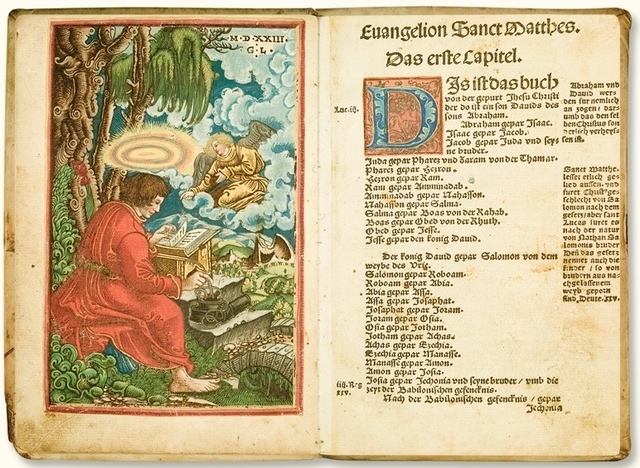 M·D·XXIII·
G·L·
Euangelion Sanct Matthes.
Das erste Capitel.
Luc. iij.
DJs ist das buch
von der gepurt Jhesu Christi
der do ist ein son Dauids des
sons Abraham.
Abraham gepar Isaac.
Isaac gepar Jacob.
Jacob gepar Juda vnd sey-
ne bruder.
Juda gepar Pharez vnd Saram von der Thamar.
Pharez gepar Hezron.
Hezron gepar Ram.
Ram gepar Amminadab.
Amminadab gepar Nahasson.
Nahasson gepar Salma.
Salma gepar Boas von der Rahab.
Boas gepar Obed von der Rhuth.
Obed gepar Jesse.
Jesse gepar den konig Dauid.
Der konig Dauid gepar Salomon von dem
weybe des Vrig.
Salomon gepar Roboam.
Roboam gepar Abia.
Abia gepar Assa.
Assa gepar Josaphat.
Josaphat gepar Joram.
Joram gepar Osia.
Osia gepar Jotham.
Jotham gepar Achas.
Achas gepar Ezechia.
Ezechia gepar Manasse.
Manasse gepar Amon.
Amon gepar Josia.
Josia gepar Jechonia vnd seyne bruder / vmb die
zeyt der Babilonischen gefencknis.
Nach der Babilonischen gefencknis / gepar
Jechonia
iiij. Reg
xxv.
Abraham vnd
Dauid werd
den fur nemlich
an zogen / dar
vmb das den sel
ben Christus son
derlich verheys
sen ist.
Sanct Matthe.
lesset etlich ge-
lied aussen / vnd
furet Christ ges-
schlecht von Sa
lomon nach dem
gesetz / aber sant
Lucas furet es
nach der natur
von Nathan Sa
lomonis bruder
Denn das gesetz
nennet auch die
kinder / so von
brudern aus na-
chgelassenem
weyb geporn
sind, Deute. xxv.